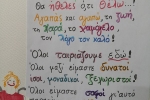 Θα ήθελες ότι Θέλω...
Αγαπάς και αγαπώ, τη ζωή,
τη χαρά, το χαμόγελο
τον λόγο τον καλό!
Όλοι ταιριάζουμε εδώ!
Όλοι μαζί είμαστε δυνατοί
ίσοι, μοναδικοί ξεχωριστοί!
Όλοι είμαστε σοφοί